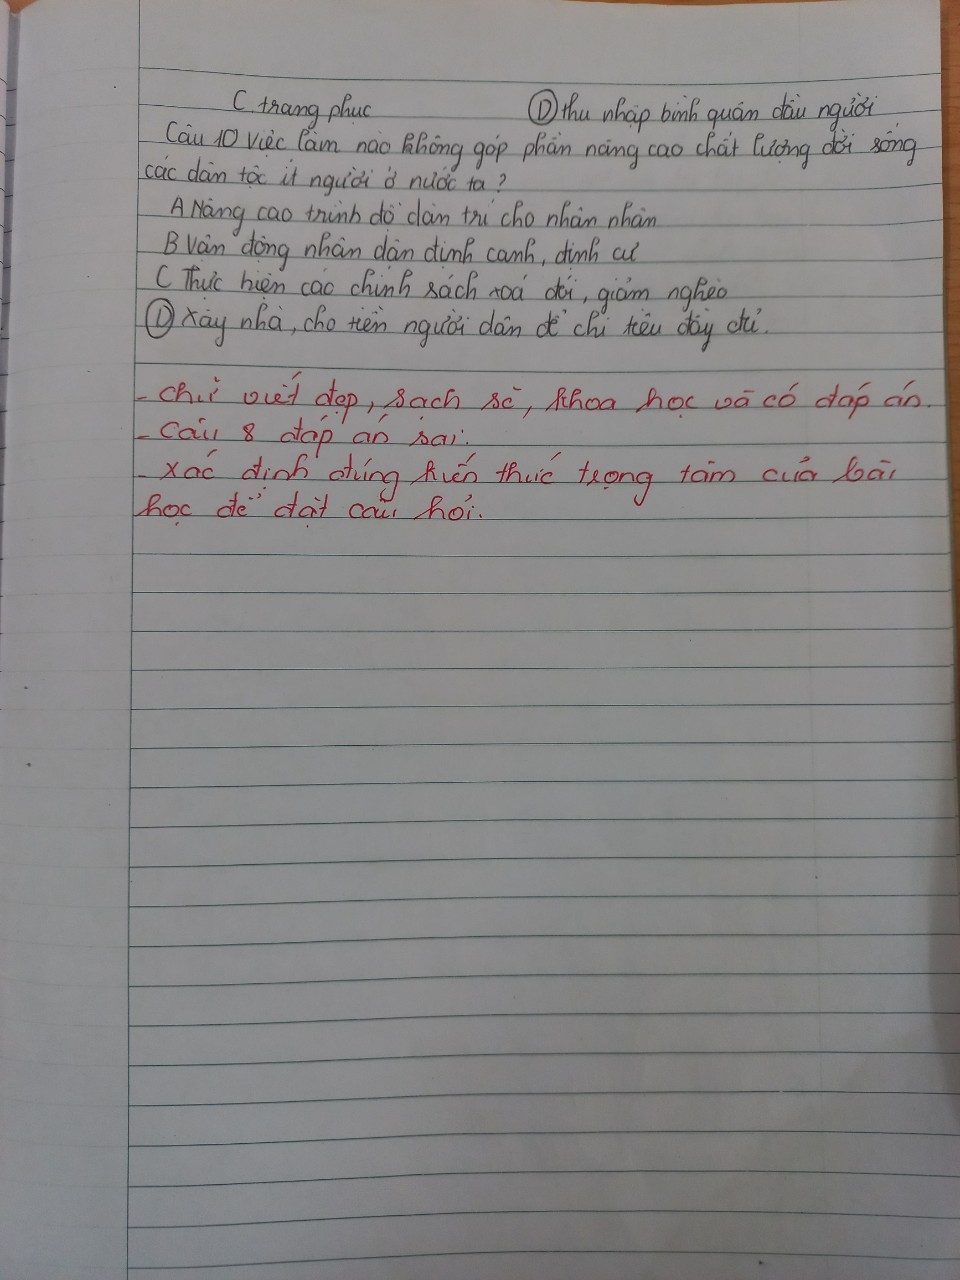 C trang phục D thu nhập bình quân đầu người
Câu 10 Việc làm nào không góp phần nâng cao chất lượng đời sống
các dân tộc ít người ở nước ta?
A Nâng cao trình độ dân trí cho nhân nhân
B Vận động nhân dân định canh, định cư
C Thực hiện các chính sách xoá đói, giảm nghèo
D Xây nhà, cho tiền người dân để chi tiêu đầy đủ.
- Chữ viết đẹp, sạch sẽ, khoa học và có đáp án.
- Câu 8 đáp án sai.
- Xác định đúng kiến thức trọng tâm của bài
học để đặt câu hỏi.